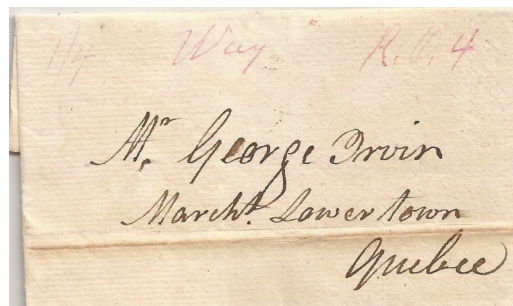 1/4 Way R. O. 4
Mr. George Irvin
Marcht. Lower town
Quebec